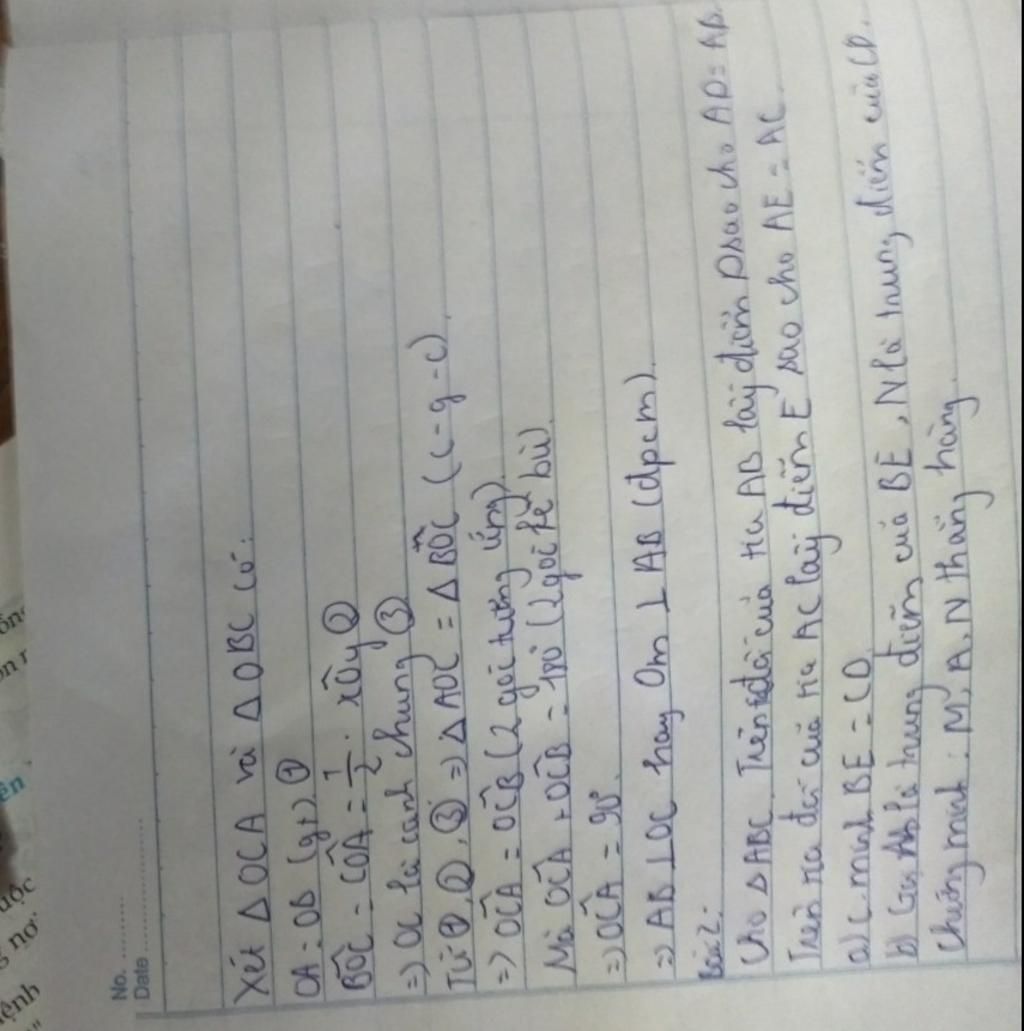 No. ............
Date ......................
Xét Δ OCA và Δ OBC có:
OA = OB (gt) ①
BÔC = CÔA = 1/2 . xÔy ②
=) OC là cạnh chung ③
Từ ①, ②, ③ =) Δ AOC = Δ BOC (c - g - c).
=) OĈA = OĈB (2 góc tương ứng)
Mà OĈA + OĈB = 180 (2 góc kề bù).
=) OĈA = 90°.
=) AB ⊥ OC hay Om ⊥ AB (dpcm).
Bài 2:
Cho Δ ABC. Trên tia đối của tia AB lấy điểm D sao cho AD = AB.
Trên tia đối của tia AC lấy điểm E sao cho AE = AC.
a) C. minh BE = CD.
b) Gọi M là trung điểm của BE, N là trung điểm của CD.
Chứng minh: M, A, N thẳng hàng.
ên
uộc
g nơ.
ệnh